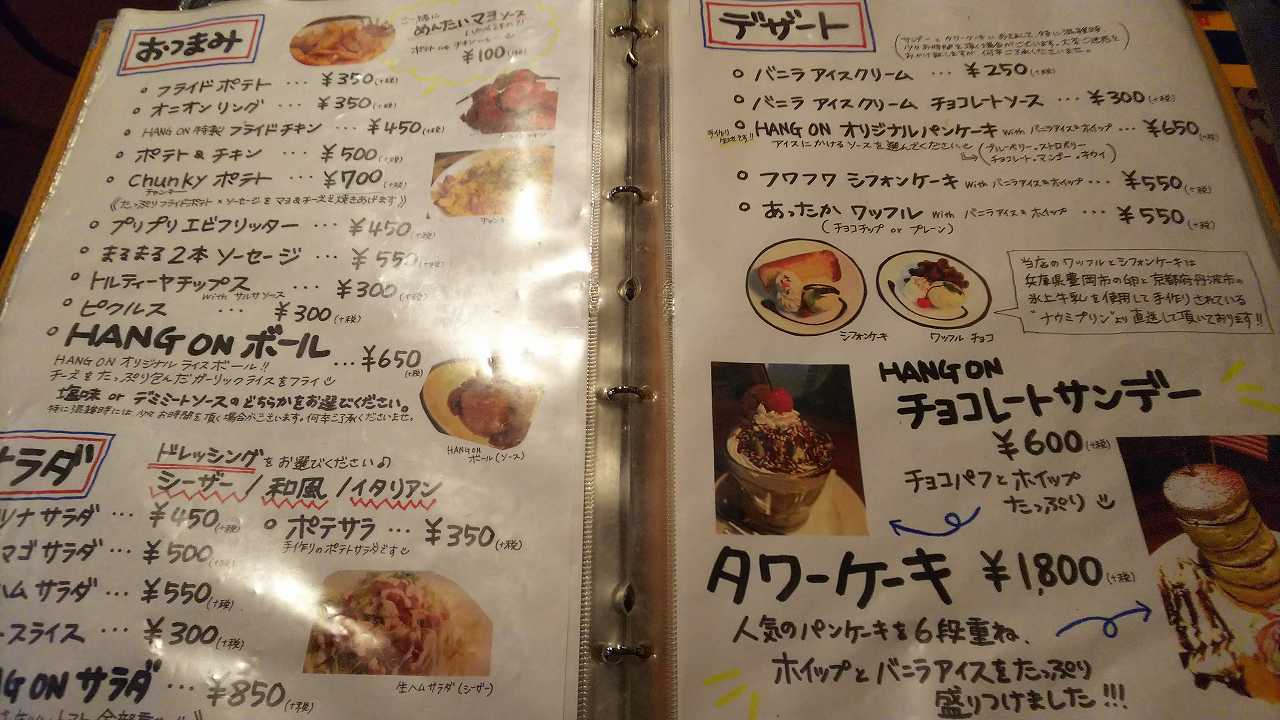 おつまみ
めんたいマヨソース
¥100(+税)
フライドポテト ・・・ ¥350(+税)
オニオンリング ・・・ ¥350(+税)
HANG ON 特製 フライドチキン ・・・ ¥450(+税)
ポテト&チキン ・・・ ¥500(+税)
Chunky ポテト ・・・ ¥700(+税)
チャンキー
《たっぷりフライドポテト×ソーセージをマヨ&チーズと焼きあげます》
プリプリエビフリッター ・・・ ¥450(+税)
まるまる2本 ソーセージ ・・・ ¥550(+税)
トルティーヤチップス ・・・ ¥300(+税)
with サルサソース
ピクルス ・・・ ¥300(+税)
HANG ON ボール ・・・ ¥650(+税)
HANG ON オリジナルライスボール!!
チーズをたっぷり包んだガーリックライスをフライ
塩味 or デミミートソースのどちらかをお選びください。
特に混雑時には少々お時間を頂く場合がございます。何卒ご了承くださいませ。
HANG ON
ボール(ソース)
サラダ
ドレッシングをお選びください♪
シーザー/和風/イタリアン
ツナサラダ ・・・ ¥450(+税)
マゴサラダ ・・・ ¥500(+税)
ハムサラダ ・・・ ¥550(+税)
スライス ・・・ ¥300(+税)
NG ON サラダ ・・・ ¥850(+税)
ポテサラ ・・・ ¥350(+税)
手作りのポテトサラダです
生ハムサラダ(シーザー)
デザート
バニラアイスクリーム ・・・ ¥250(+税)
バニラアイスクリーム チョコレートソース ・・・ ¥300(+税)
HANG ON オリジナルパンケーキ with バニラアイス&ホイップ ・・・ ¥650(+税)
アイスにかけるソースを選んでください
(ブルーベリー・ストロベリー
チョコレート・マンゴー・キウイ)
フワフワ シフォンケーキ with バニラアイス&ホイップ ・・・ ¥550(+税)
あったか ワッフル with バニラアイス&ホイップ ・・・ ¥550(+税)
(チョコチップ or プレーン)
シフォンケーキ
ワッフル チョコ
当店のワッフルとシフォンケーキは
兵庫県豊岡市の卵と京都府丹波市の
氷上牛乳を使用して手作りされている
"ナウミプリン"より直送して頂いております!!
HANG ON
チョコレートサンデー
¥600(+税)
チョコパフとホイップ
たっぷり
タワーケーキ ¥1,800(+税)
人気のパンケーキを6段重ね、
ホイップとバニラアイスをたっぷり
盛りつけました!!!